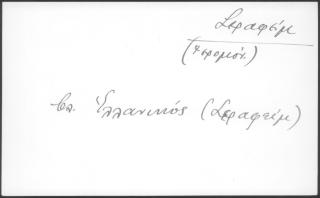 Σεραφείμ
(Ιερομόν.)
βλ. Ἑλλανικός (Σεραφείμ)